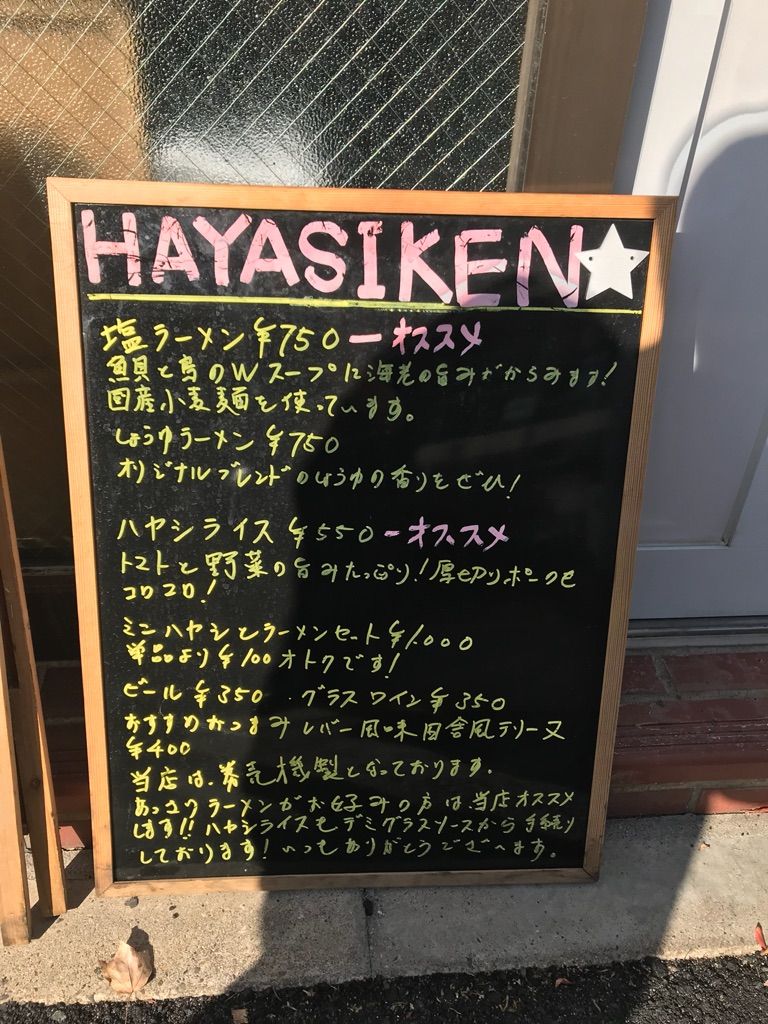 HAYASIKEN
塩ラーメン ¥750 ーオススメ
魚貝と鳥のWスープに海老の旨みがからみます!
国産小麦麺を使っています。
しょうゆラーメン ¥750
オリジナルブレンドのしょうゆの香りをぜひ!
ハヤシライス ¥550 -オススメ
トマトと野菜の旨みたっぷり!厚切りポークも
コロコロ!
ミニハヤシとラーメンセット ¥1.000
単品より¥100オトクです!
ビール ¥350 . グラスワイン ¥350
おすすめおつまみ レバー風味田舎風テリーヌ
¥400
当店は、券売機製となっております.
あっさりラーメンがお好みの方は当店オススメ
します!!ハヤシライスもデミグラスソースから手作り
しております!いつもありがとうございます。